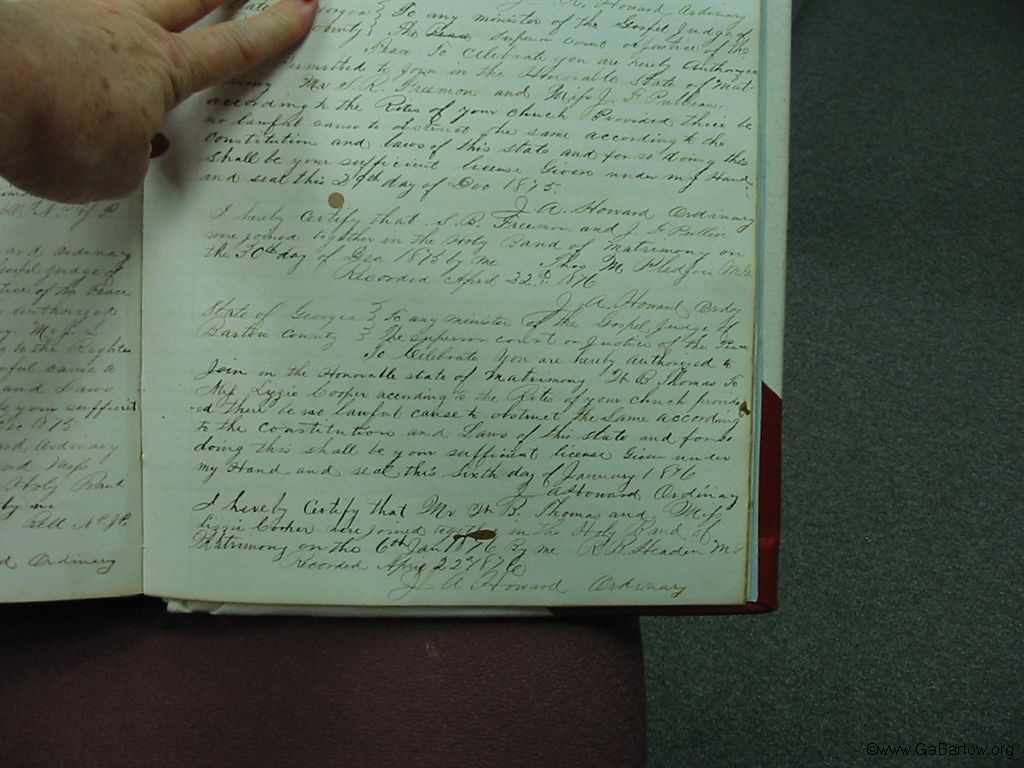 and Ordinary
Gospel Judge of
tice of the Peace
authorized
Mr J. L.
to the Rights
ful cause to
and Laws
be your sufficient
Dec 1875
Ordinary
and Miss
Holy Band
by me
Bell N. P. J. P.
Ordinary
J. A. Howard Ordinary
State of Georgia } To any minister of the Gospel Judge of
County } The Superior Court or Justice of the
Peace To Celebrate you are hereby Authorized
Permitted to Join in the Honorable State of Mat-
rimony Mr S. R. Freemon and Miss J. F. Pullen
according to the Rites of your Church Provided there be
no lawful cause to obstruct the same according to the
constitution and laws of this state and for so doing this
shall be your sufficient license Given under my Hand
and seal this 29th day of Dec 1875
J. A. Howard Ordinary
I hereby Certify that S. B. Freemon and J. F. Pullen
were joined together in the Holy Band of Matrimony on
the 30th day of Dec 1875 by me Thos M. Pledger M. G.
Recorded April 22d 1876
J. A. Howard Ordy
State of Georgia } To any minister of the Gospel Judge of
Bartow County } The Superior court or Justice of the Peace
To Celebrate you are hereby authorized to
Join in the Honorable state of Matrimony W B Thomas To
Miss Lizzie Cooper according to the Rites of your church provid-
-ed there be no lawful cause to obstruct the same according
to the constitution and Laws of this state and for so
doing this shall be your sufficient license Given under
my Hand and seal this Sixth day of January 1876
J. A. Howard Ordinary
I hereby Certify that Mr W B. Thomas and Miss
Lizzie Cooper were joined together in the Holy Band of
Matrimony on the 6th Jan 1876 By me R. B. Headen M G
Recorded April 22d 1876
J A Howard Ordinary
©www.GaBartow.org